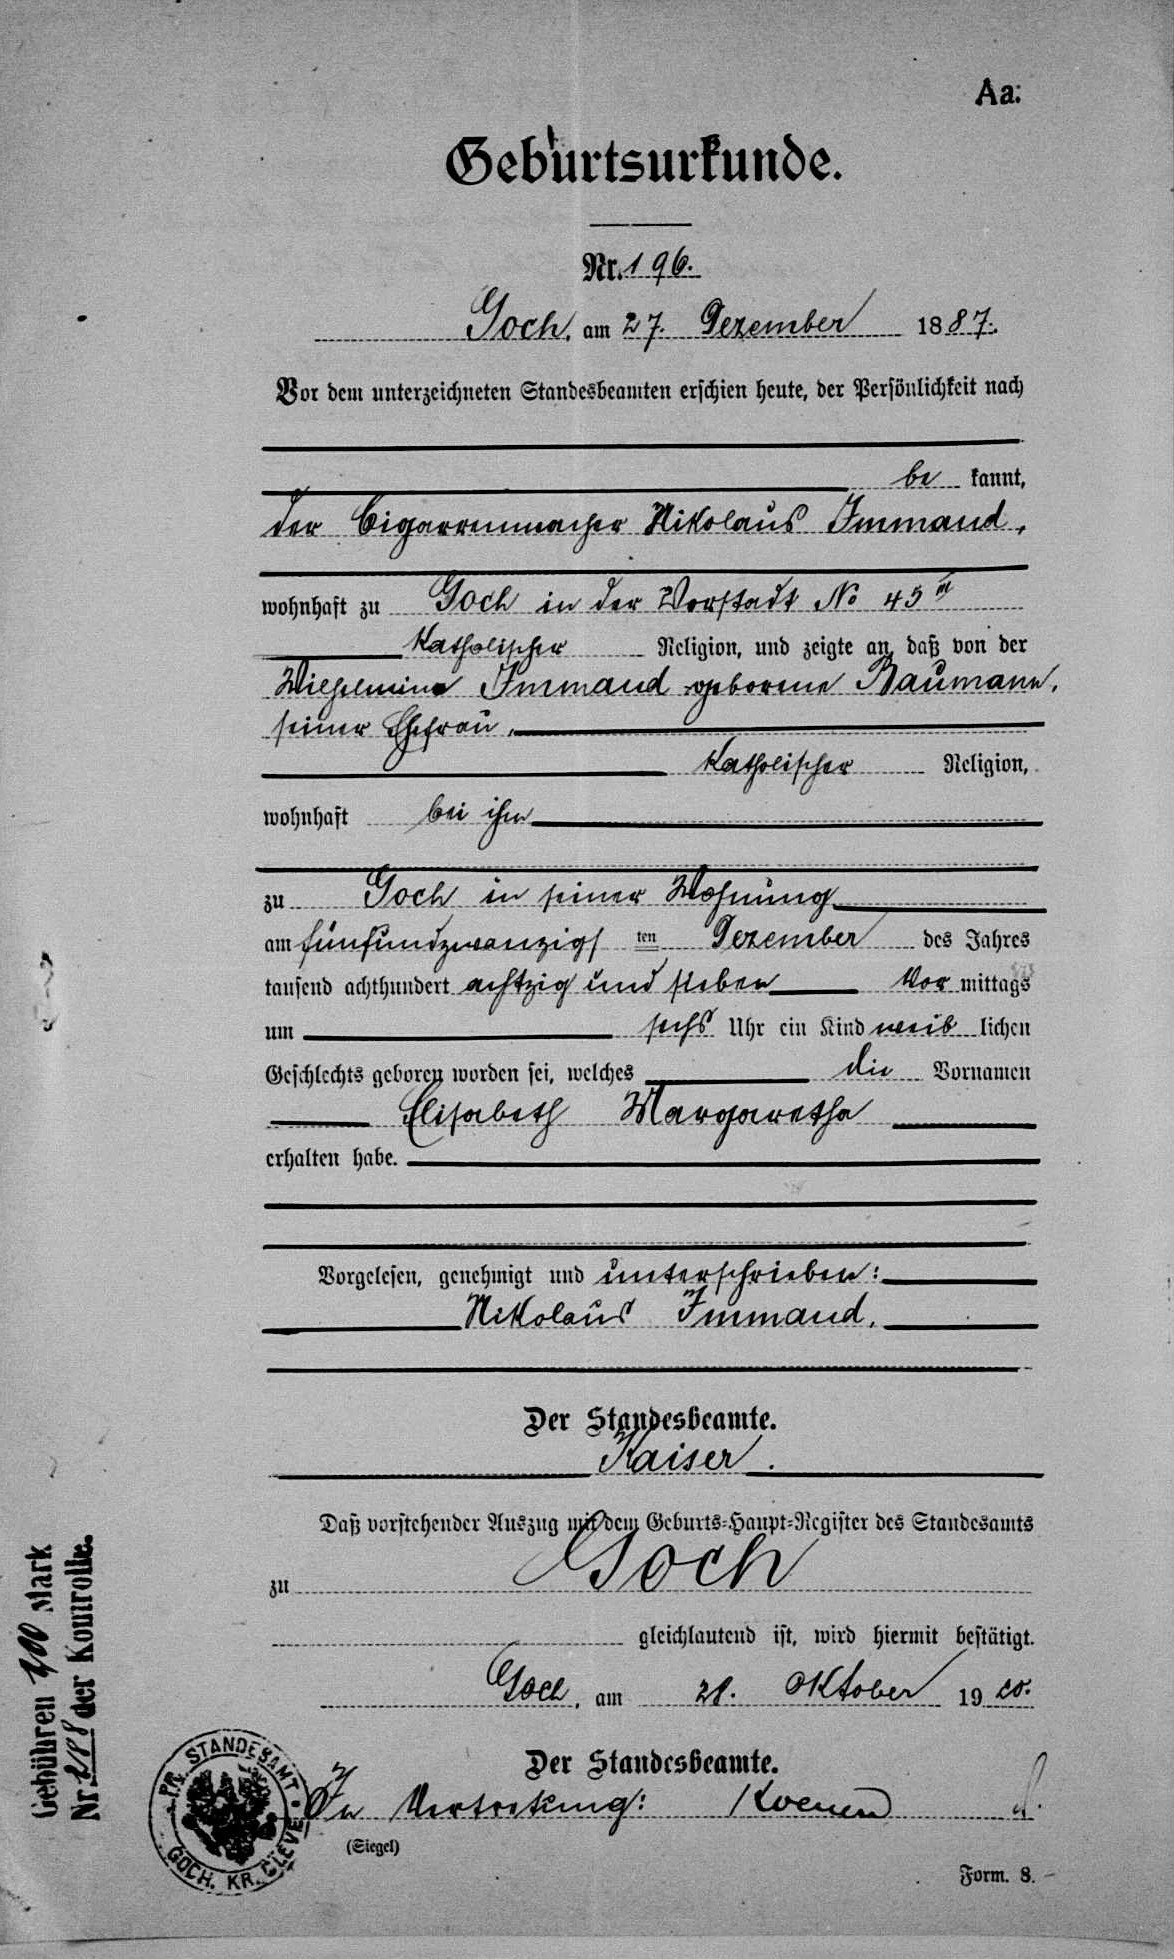 Aa:
Geburtsurkunde.
Nr. 196.
Goch, am 27. Dezember 1887.
Vor dem unterzeichneten Standesbeamten erschien heute, der Persönlichkeit nach
be kannt,
der Cigarrenmacher Nikolaus Immand,
wohnhaft zu Goch in der Vorstadt No 45
Katholischer Religion, und zeigte an, daß von der
Wilhelmina Immand geborene Baumann,
seiner Ehefrau,
Katholischer Religion,
wohnhaft bei ihm
zu Goch in seiner Wohnung
am fünfundzwanzigs ten Dezember des Jahres
tausend achthundert achtzig und sieben Vor mittags
um sechs Uhr ein Kind weib lichen
Geschlechts geboren worden sei, welches die Vornamen
Elisabeth Margaretha
erhalten habe.
Vorgelesen, genehmigt und unterschrieben:
Nikolaus Immand.
Der Standesbeamte.
Kaiser.
Daß vorstehender Auszug mit dem Geburts-Haupt-Register des Standesamts
zu Goch
gleichlautend ist, wird hiermit bestätigt.
Goch, am 21. Oktober 1920.
Der Standesbeamte.
In Vertretung:
(Siegel)
Form. 8.
Gebühren Mark
Nr. der Kontrolle.
PR. STANDESAMT
GOCH. KR. CLEVE